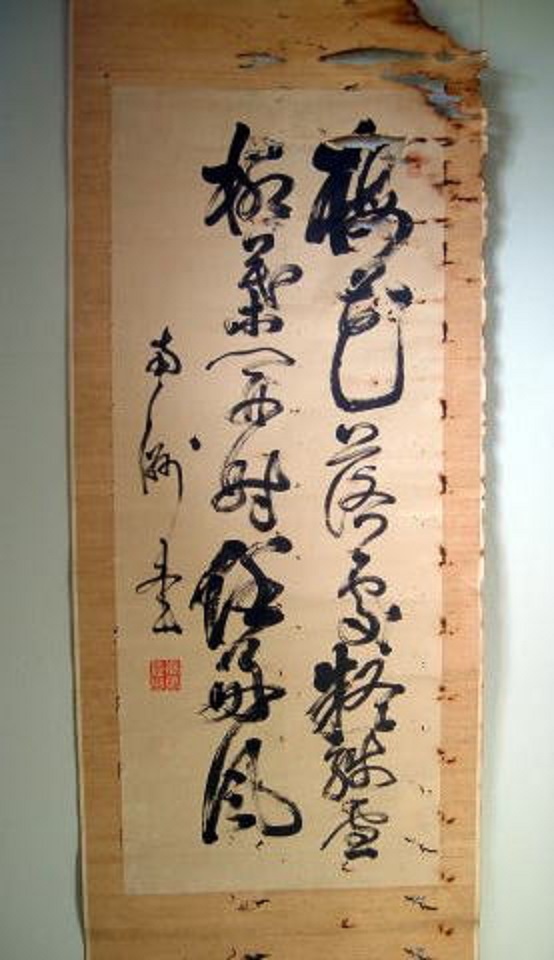 梅花落處疑殘雪
柳葉開時任好風
南洲書